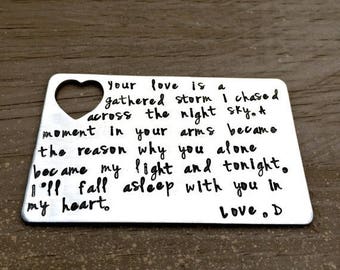 Your love is a
gathered storm I chased
across the night sky. A
moment in your arms became
the reason why you alone
became my light and tonight.
I'll fall asleep with you in
my heart. Love, D